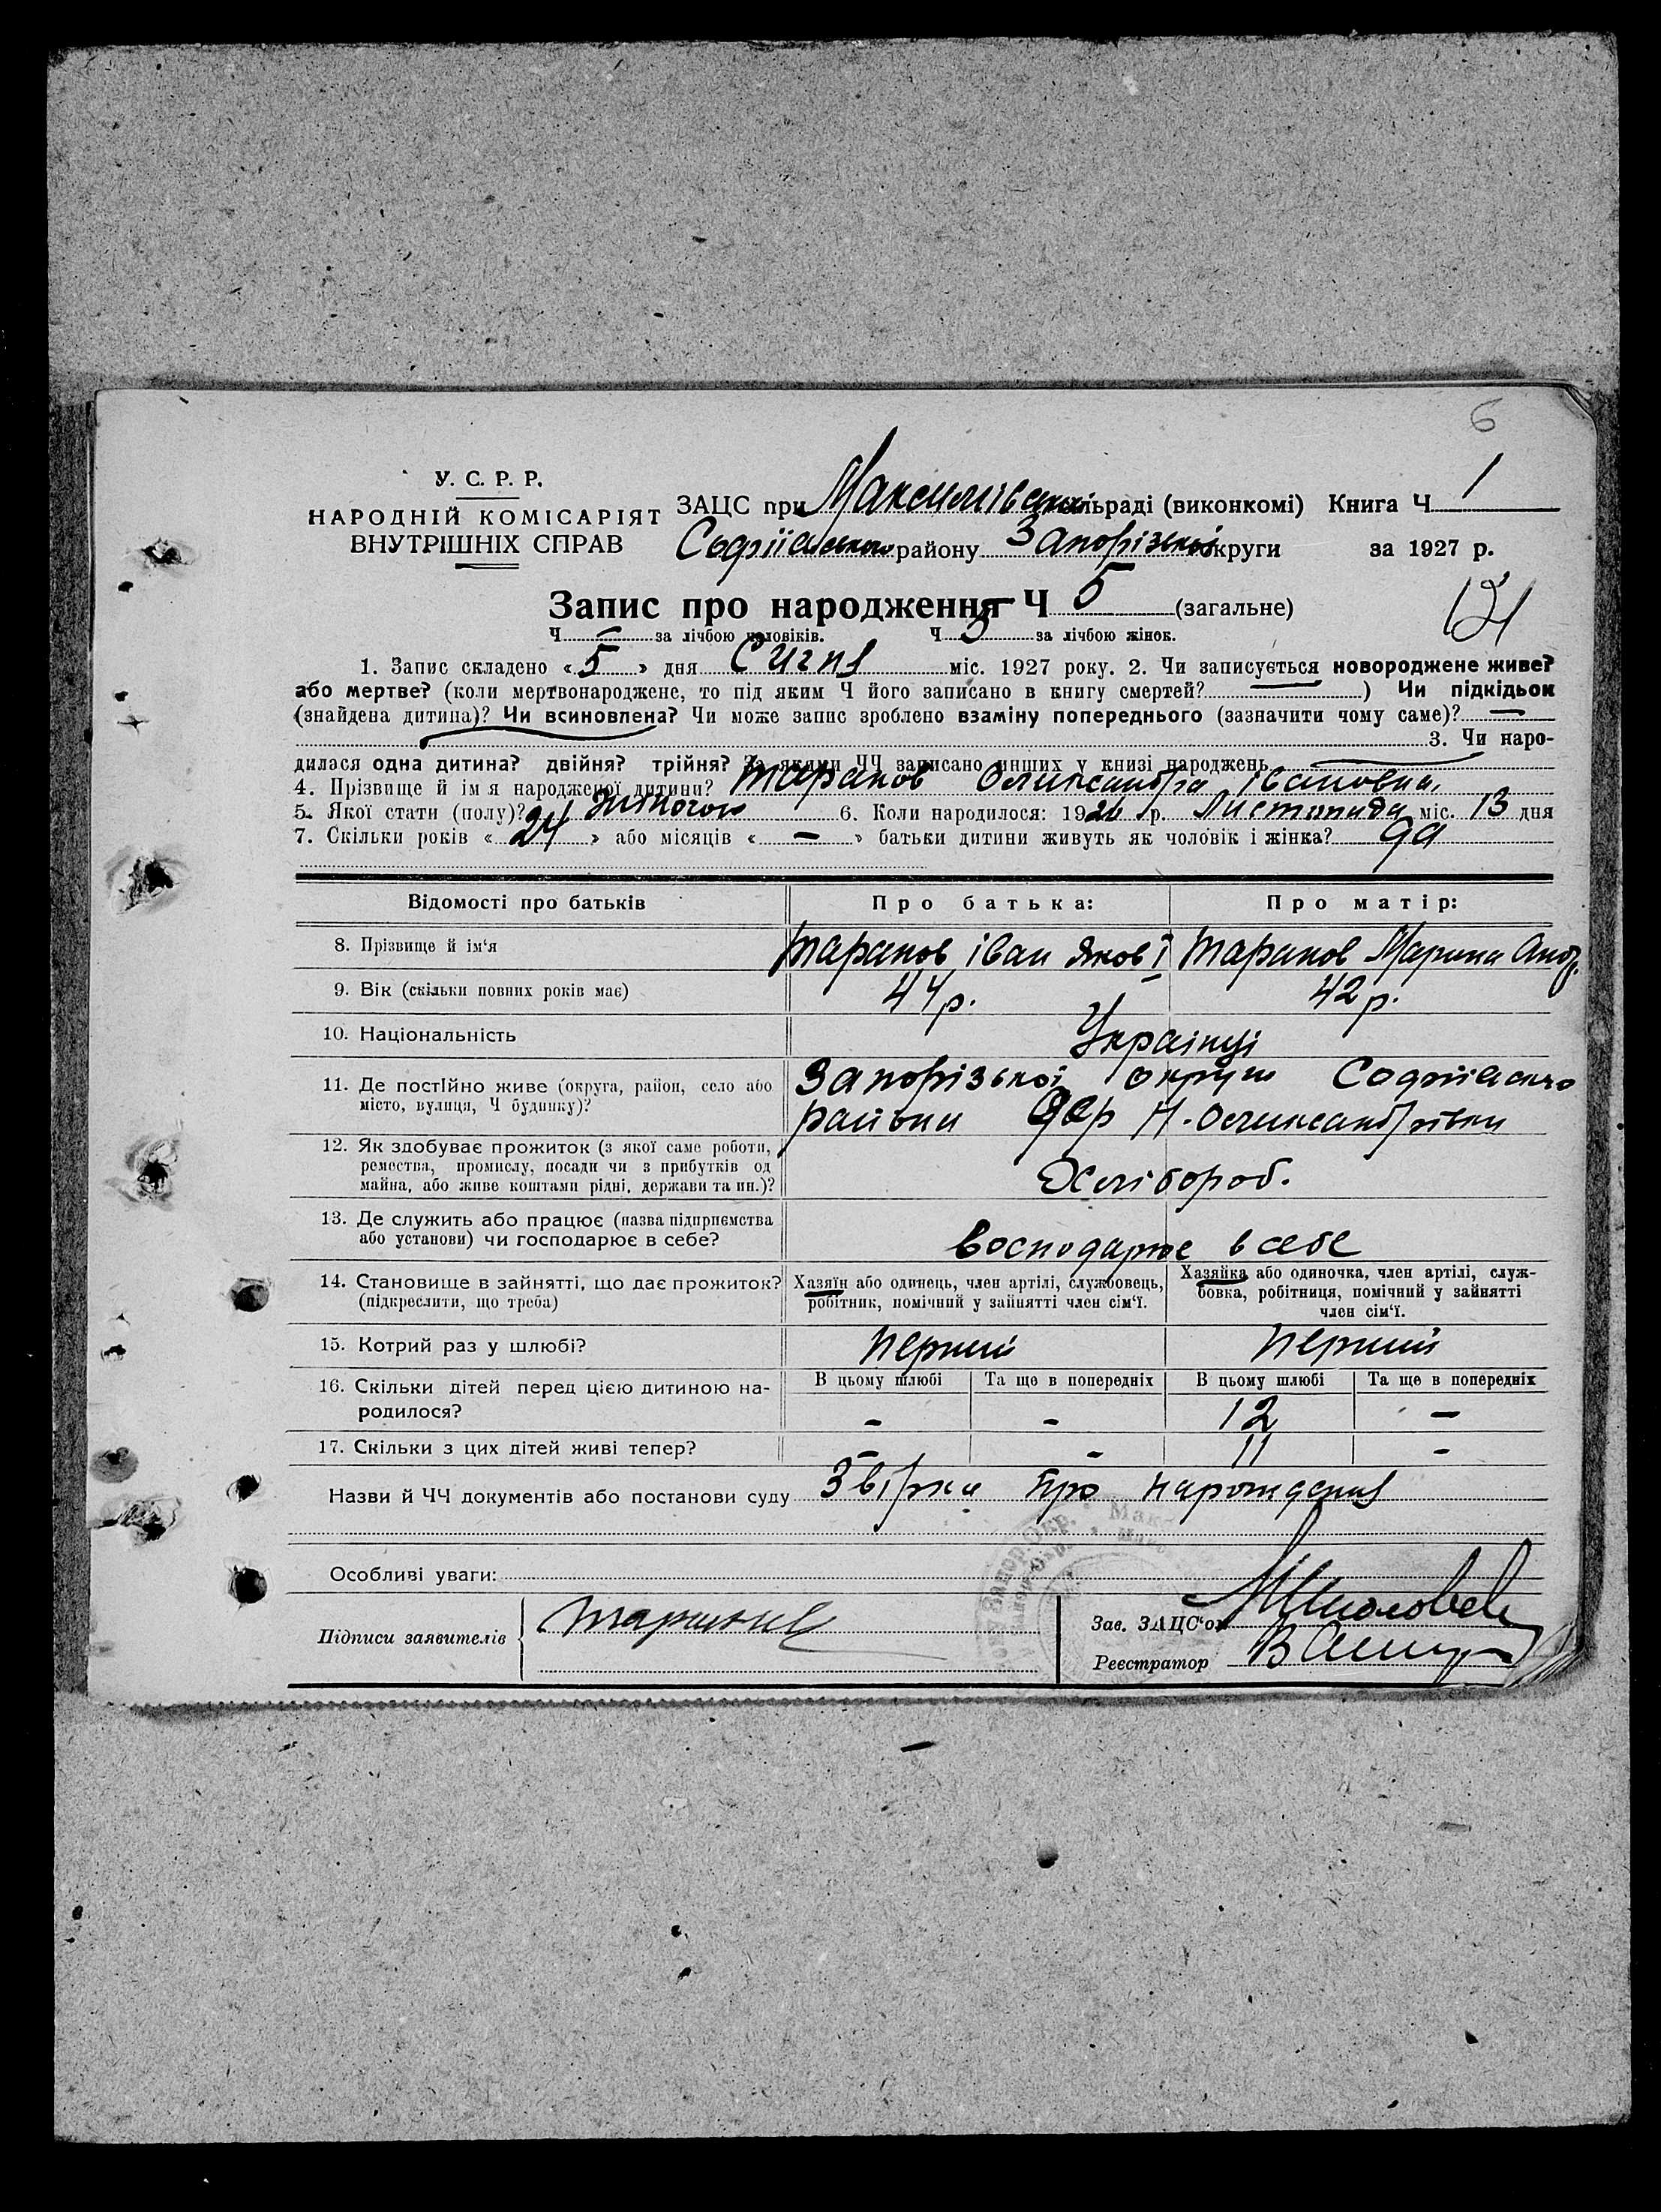 6
У. С. Р. Р.
НАРОДНІЙ КОМІСАРІЯТ
ВНУТРІШНІХ СПРАВ
ЗАЦС при сільраді (виконкомі) Книга Ч 1
району Запорізької округи за 1927 р.
Запис про народження Ч 5 (загальне)
Ч — за лічбою чоловіків. Ч 3 за лічбою жінок.
1. Запис складено « 5 » дня Січня міс. 1927 року. 2. Чи записується новороджене живе?
або мертве? (коли мертвонароджене, то під яким Ч його записано в книгу смертей? — ) Чи підкідьок
(знайдена дитина)? Чи всиновлена? Чи може запис зроблено взаміну попереднього (зазначити чому саме)? —
3. Чи наро-
дилася одна дитина? двійня? трійня? За якими ЧЧ записано инших у книзі народжень
4. Прізвище й ім'я народженої дитини? Таранов Олександра Івановна,
5. Якої стати (полу)? жіночою 6. Коли народилося: 1926 р. Листопада міс. 13 дня
7. Скільки років « 24 » або місяців « — » батьки дитини живуть як чоловік і жінка? да
Відомості про батьків Про батька: Про матір:
8. Прізвище й ім'я Таранов Іван Яков Таранов Марина Анд.
9. Вік (скільки повних років має) 44 р. 42 р.
10. Національність Українці
11. Де постійно живе (округа, район, село або Запорізької округи
місто, вулиця, Ч будинку)? району Н.-Олександрівки
12. Як здобуває прожиток (з якої саме роботи,
ремества, промислу, посади чи з прибутків од
майна, або живе коштами рідні, держави та ин.)? Хлібороб.
13. Де служить або працює (назва підприємства
або установи) чи господарює в себе? восподарює в себе
14. Становище в зайнятті, що дає прожиток? Хазяїн або одинець, член артілі, службовець, Хазяйка або одиночка, член артілі, служ-
(підкреслити, що треба) робітник, помічний у зайнятті член сім'ї. бовка, робітниця, помічний у зайнятті
член сім'ї.
15. Котрий раз у шлюбі? перший перший
16. Скільки дітей перед цією дитиною на- В цьому шлюбі Та ще в попередніх В цьому шлюбі Та ще в попередніх
родилося? - - 12 —
17. Скільки з цих дітей живі тепер? - - 11 -
Назви й ЧЧ документів або постанови суду про
Особливі уваги:
Підписи заявителів
Зав. ЗАЦС'ом
Реєстратор